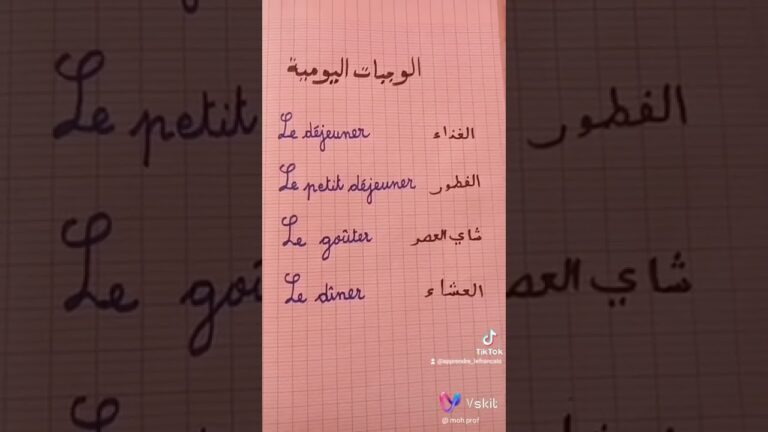 الوجبات اليومية
Le déjeuner الغذاء
Le petit déjeuner الفطور
Le goûter شاي العصر
Le dîner العشاء
TikTok
@apprendre_lefrancais
Vskit
@ moh prof
Le petit الفطور
Le goû شاي العصر